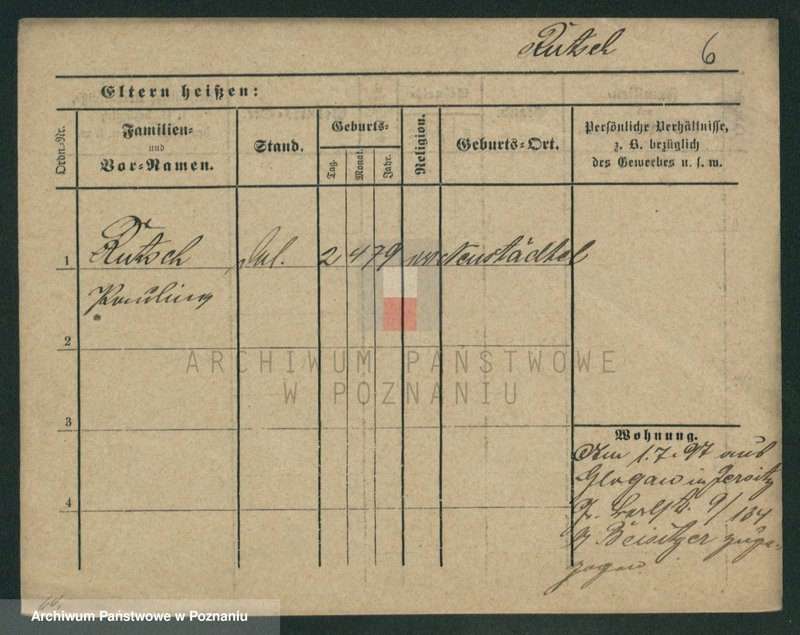 Rutsch 6
Eltern heißen:
Ordn.-Nr.
Familien-
und
Vor-Namen.
Stand.
Geburts-
Tag.
Monat.
Jahr.
Religion.
Geburts-Ort.
Persönliche Verhältnisse,
z. B. bezüglich
des Gewerbes u. s. w.
1 Rutsch 2 4 79 Neustädtel
Pauline
2
3
4
Wohnung.
Am 1.7.97 aus
Glogau in Jersitz
9/134
b Beisitzer zuge-
zogen.
ARCHIWUM PAŃSTWOWE
W POZNANIU
Archiwum Państwowe w Poznaniu